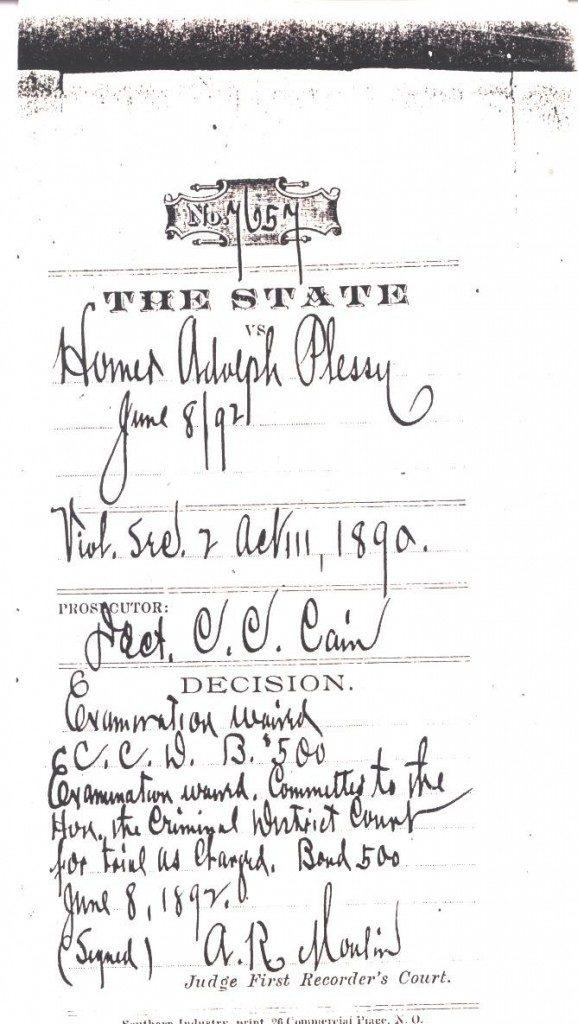 No. 7657
THE STATE
VS.
Homer Adolph Plessy
June 8/92
Viol. Sec. 2 Act 111, 1890.
PROSECUTOR:
Dect. C. C. Cain
DECISION.
Examination waived
C. C. D. B. $500
Examination waived. Committed to the
Hon. the Criminal District Court
for trial as charged. Bond 500
June 8, 1892.
(Signed) A. R. Moulin
Judge First Recorder's Court.
Southern Industry, print, 26 Commercial Place, N. O.